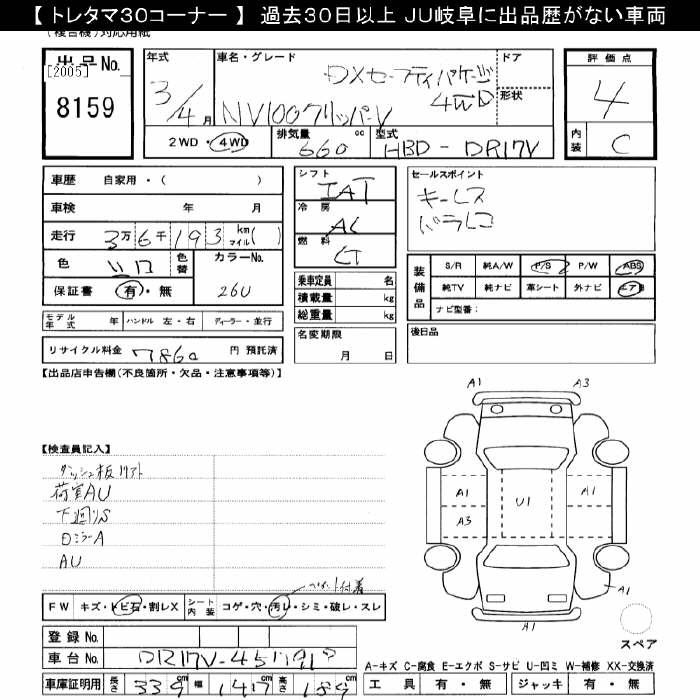 【 トレタマ30コーナー 】 過去30日以上 JU岐阜に出品歴がない車両
(複合機)対応用紙
出品No.
[2005]
8159
年式
3/4月
車名・グレード
DXセーフティパッケージ
4WD
NV100クリッパーV
ドア
形状
2WD・4WD
排気量 660 cc
型式 HBD-DR17V
評価点
4
内装 C
車歴 自家用・( )
車検 年 月
走行 3万6千193 km マイル( )
色 シロ 色替 カラーNo. 26U
保証書 有・無
モデル年式 年 ハンドル 左・右 ディーラー・並行
リサイクル料金 7860 円 預託済
シフト IAT
冷房 AC
燃料
乗車定員 名
積載量 kg
総重量 kg
名変期限
月 日
セールスポイント
キーレス
ドラレコ
装備品
S/R 純A/W P/S P/W ABS
純TV 純ナビ 革シート 外ナビ エアB
ナビ型番:
後日品
【出品店申告欄(不良箇所・欠品・注意事項等)】
【検査員記入】
ダッシュ板リフト
荷室AU
下廻りS
ロミラーA
AU
FW キズ・トビ石・割レX シート内装 コゲ・穴・汚レ・シミ・破レ・スレ
付着
登録No.
車台No.
車庫証明用 長さ 339cm 幅 147cm 高さ 189cm
A1 A3
A1 U1 A1
A3
A1
A1
スペア
A-キズ C-腐食 E-エクボ S-サビ U-凹ミ W-補修 XX-交換済
工具 有・無 ジャッキ 有・無